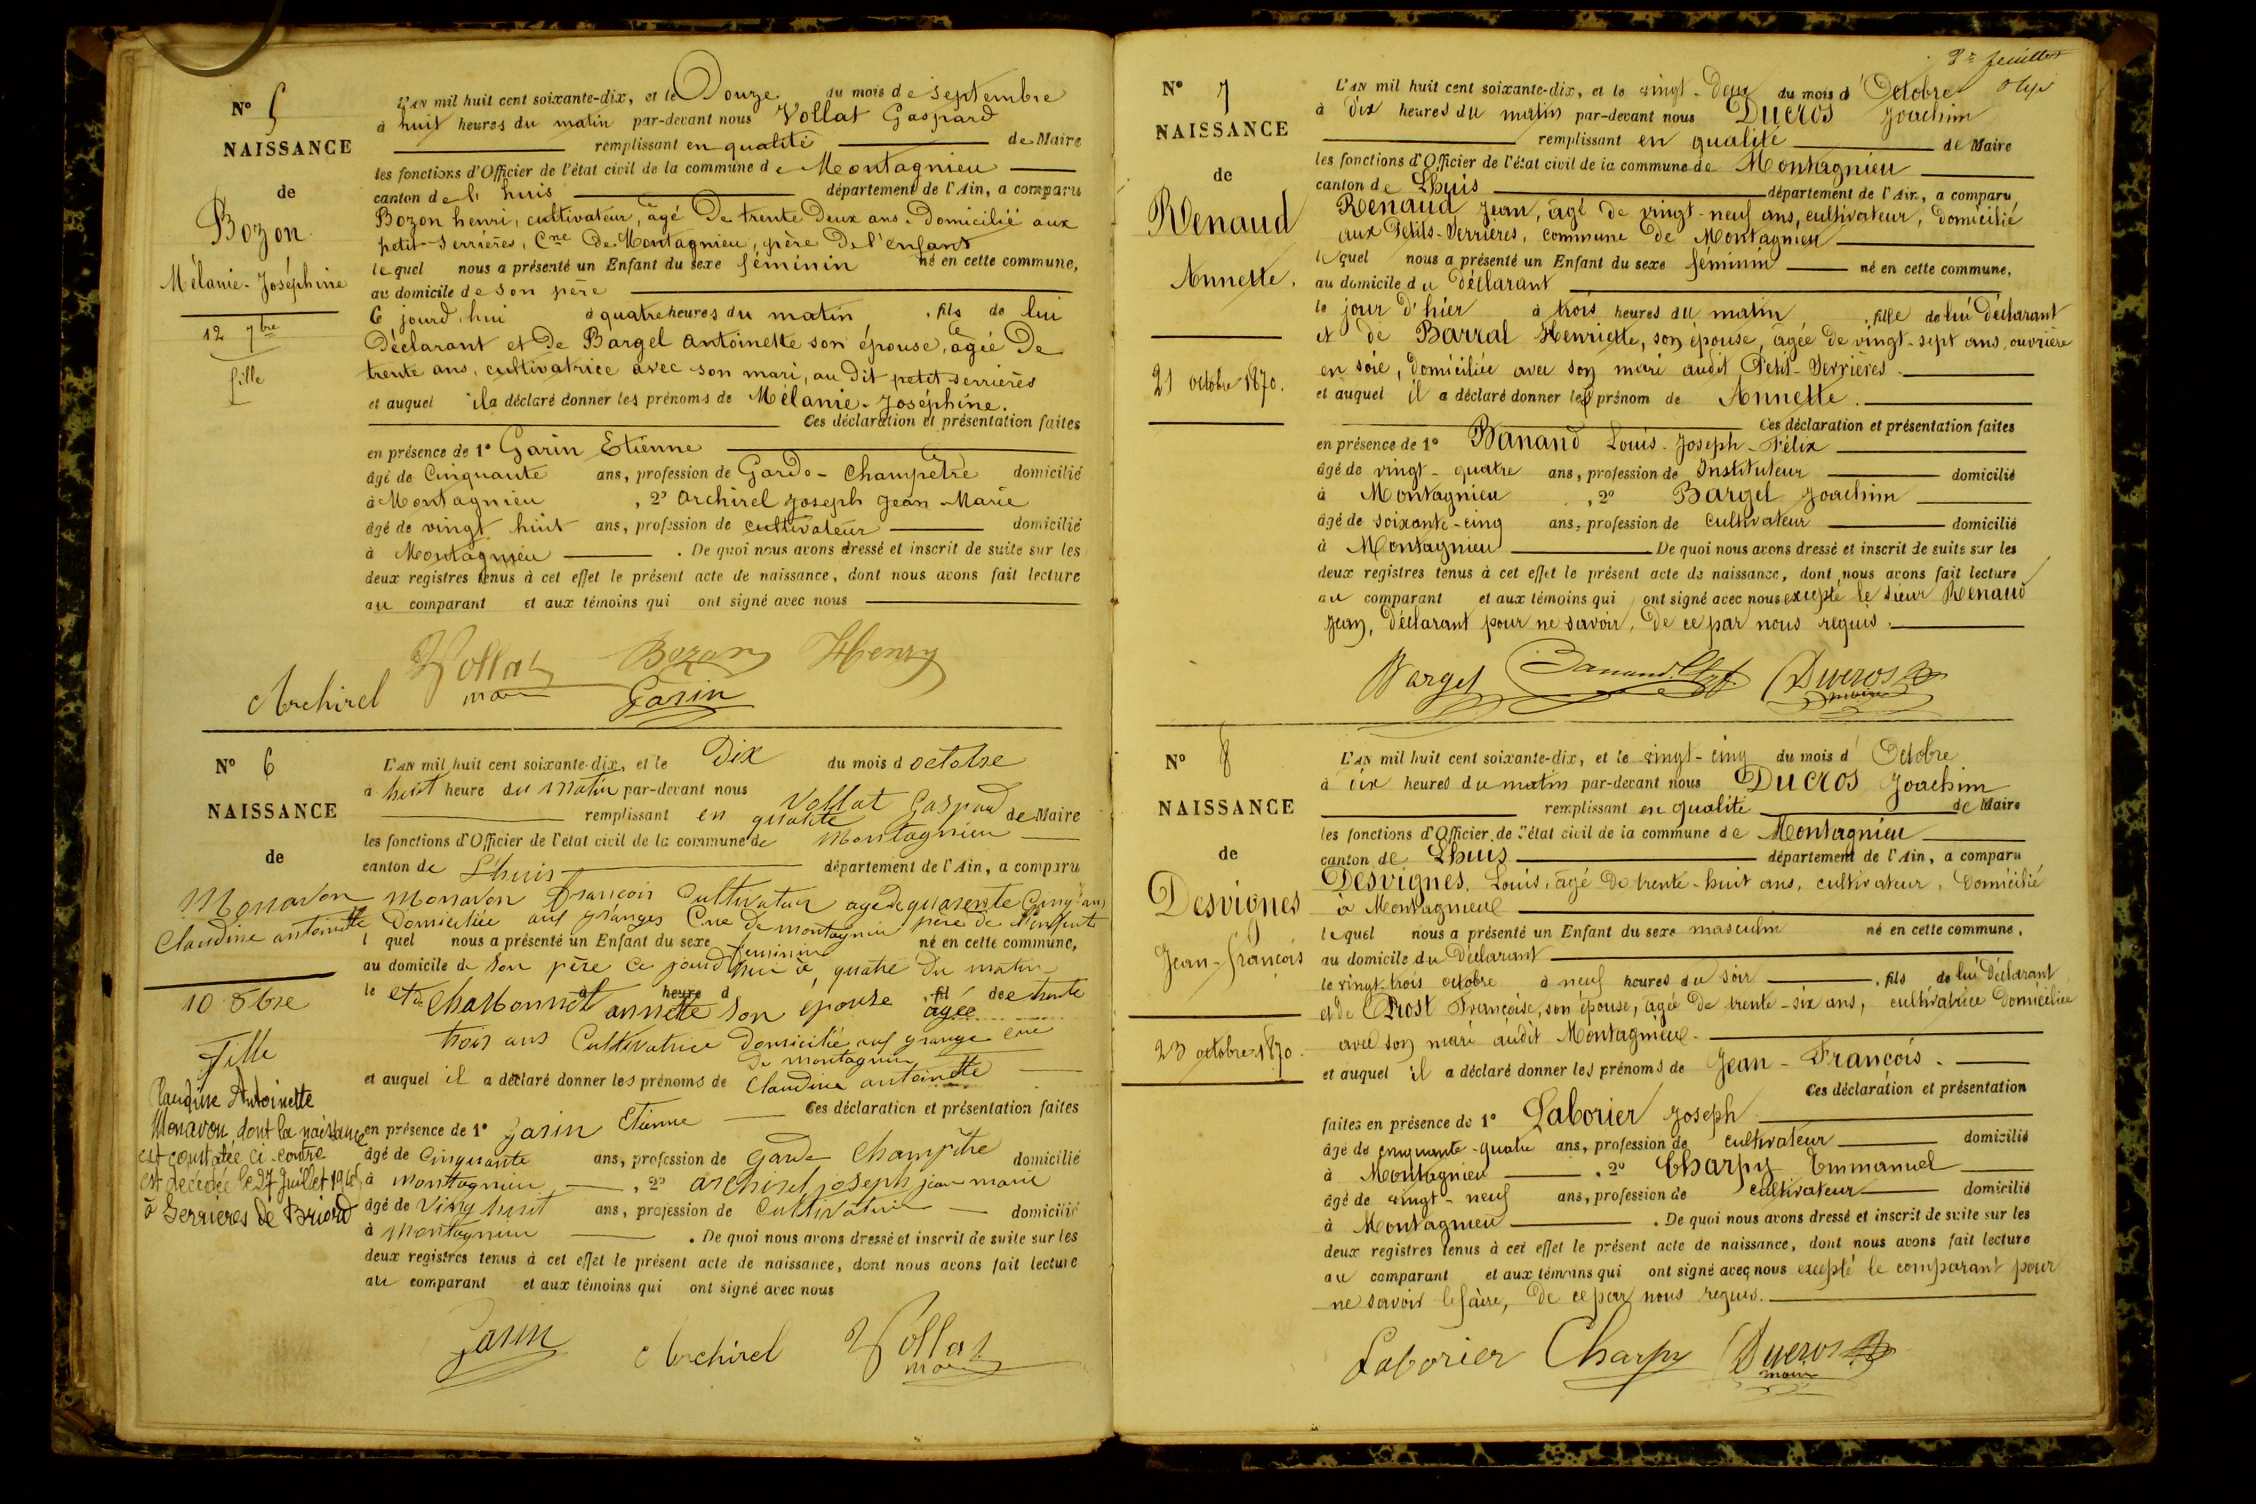 N° 5
NAISSANCE
de
Bozon
Mélanie-Joséphine
12 7bre
fille
L'AN mil huit cent soixante-dix, et le Douze du mois de septembre
à huit heures du matin par-devant nous Vollat Gaspard
remplissant en qualité de Maire
les fonctions d'Officier de l'état civil de la commune de Montagnieu
canton de l'huis département de l'Ain, a comparu
Bozon henri, cultivateur, âgé De trente Deux ans. Domicilié aux
petit-Serrières, Cne De Montagnieu, père De l'enfant
lequel nous a présenté un Enfant du sexe féminin né en cette commune,
au domicile de son père
Ce jourd'hui à quatre heures du matin, fils de lui
Déclarant et De Bargel antoinette son épouse, âgée De
trente ans, cultivatrice avec son mari, au Dit petit serrières
et auquel il a déclaré donner les prénoms de Mélanie-Joséphine.
Ces déclaration et présentation faites
en présence de 1° Garin Etienne
âgé de Cinquante ans, profession de Garde-Champêtre domicilié
à Montagnieu, 2° archirel Joseph Jean-Marie
âgé de vingt huit ans, profession de cultivateur domicilié
à Montagnieu. De quoi nous avons dressé et inscrit de suite sur les
deux registres tenus à cet effet le présent acte de naissance, dont nous avons fait lecture
au comparant et aux témoins qui ont signé avec nous
Vollat Bozon Henry
Archirel maire Garin
N° 6
NAISSANCE
de
Monavon
Claudine antoinette
10 8bre
fille
Claudine Antoinette
Monavon, dont la naissance
est constatée ci-contre
est décédée le 27 Juillet
à Serrières de Briord
L'AN mil huit cent soixante-dix, et le Dix du mois d octobre
à huit heure du matin par-devant nous
Vollat Gaspard
remplissant en qualité de Maire
les fonctions d'Officier de l'état civil de la commune de Montagnieu
canton de L'huis département de l'Ain, a comparu
Monavon françois Cultivateur agé de quarente Cinq ans
Domiciliée aux granges Cne De montagnieu père de l'enfant
l quel nous a présenté un Enfant du sexe feminin né en cette commune,
au domicile de son père Ce jourd'hui à quatre Du matin
le et de Charbonnet annette son épouse agée de trente
trois ans Cultivatrice Domicilié aux grange Cne
De montagnieu
et auquel il a déclaré donner les prénoms de Claudine antoinette
Ces déclaration et présentation faites
en présence de 1° Garin Etienne
âgé de Cinquante ans, profession de Garde Champêtre domicilié
à Montagnieu, 2° archirel joseph jean marie
âgé de Vingt huit ans, profession de Cultivateur domicilié
à Montagnieu. De quoi nous avons dressé et inscrit de suite sur les
deux registres tenus à cet effet le présent acte de naissance, dont nous avons fait lecture
au comparant et aux témoins qui ont signé avec nous
Garin Archirel Vollat
maire
2e feuillet
N° 7
NAISSANCE
de
Renaud
Annette.
21 octobre 1870.
L'AN mil huit cent soixante-dix, et le vingt-Deux du mois d'Octobre
à dix heures du matin par-devant nous Ducros Joachim
remplissant en qualité de Maire
les fonctions d'Officier de l'état civil de la commune de Montagnieu
canton de Lhuis département de l'Ain, a comparu
Renaud Jean, âgé de vingt-neuf ans, cultivateur, domicilié
aux Petits-Serrières, commune De Montagnieu
lequel nous a présenté un Enfant du sexe féminin né en cette commune,
au domicile du déclarant
le jour d'hier à trois heures du matin, fille de lui déclarant
et de Barral Henriette, son épouse, âgée de vingt-sept ans, ouvrière
en soie, domiciliée avec son mari audit Petit-Serrières.
et auquel il a déclaré donner le prénom de Annette.
Ces déclaration et présentation faites
en présence de 1° Banand Louis-Joseph-Félix
âgé de vingt-quatre ans, profession de Instituteur domicilié
à Montagnieu, 2° Bargel Joachim
âgé de soixante-cinq ans, profession de Cultivateur domicilié
à Montagnieu. De quoi nous avons dressé et inscrit de suite sur les
deux registres tenus à cet effet le présent acte de naissance, dont nous avons fait lecture
au comparant et aux témoins qui ont signé avec nous excepté le sieur Renaud
Jean, déclarant pour ne savoir, De ce par nous requis.
Bargel Banand Ducros
maire
N° 8
NAISSANCE
de
Desvignes
Jean-François
23 octobre 1870.
L'AN mil huit cent soixante-dix, et le vingt-cinq du mois d'Octobre
à dix heures du matin par-devant nous Ducros Joachim
remplissant en qualité de Maire
les fonctions d'Officier de l'état civil de la commune de Montagnieu
canton de Lhuis département de l'Ain, a comparu
Desvignes Louis, âgé De trente-huit ans, cultivateur, Domicilié
à Montagnieu
lequel nous a présenté un Enfant du sexe masculin né en cette commune,
au domicile du Déclarant
le vingt-trois octobre à neuf heures du soir, fils de lui Déclarant
et de Prost Françoise, son épouse, âgée De trente-six ans, cultivatrice Domiciliée
avec son mari audit Montagnieu.
et auquel il a déclaré donner les prénoms de Jean-François.
Ces déclaration et présentation
faites en présence de 1° Laborier Joseph
âgé de cinquante-quatre ans, profession de cultivateur domicilié
à Montagnieu, 2° Charpy Emmanuel
âgé de vingt-neuf ans, profession de cultivateur domicilié
à Montagnieu. De quoi nous avons dressé et inscrit de suite sur les
deux registres tenus à cet effet le présent acte de naissance, dont nous avons fait lecture
au comparant et aux témoins qui ont signé avec nous excepté le comparant pour
ne savoir le faire, De ce par nous requis.
Laborier Charpy Ducros
maire